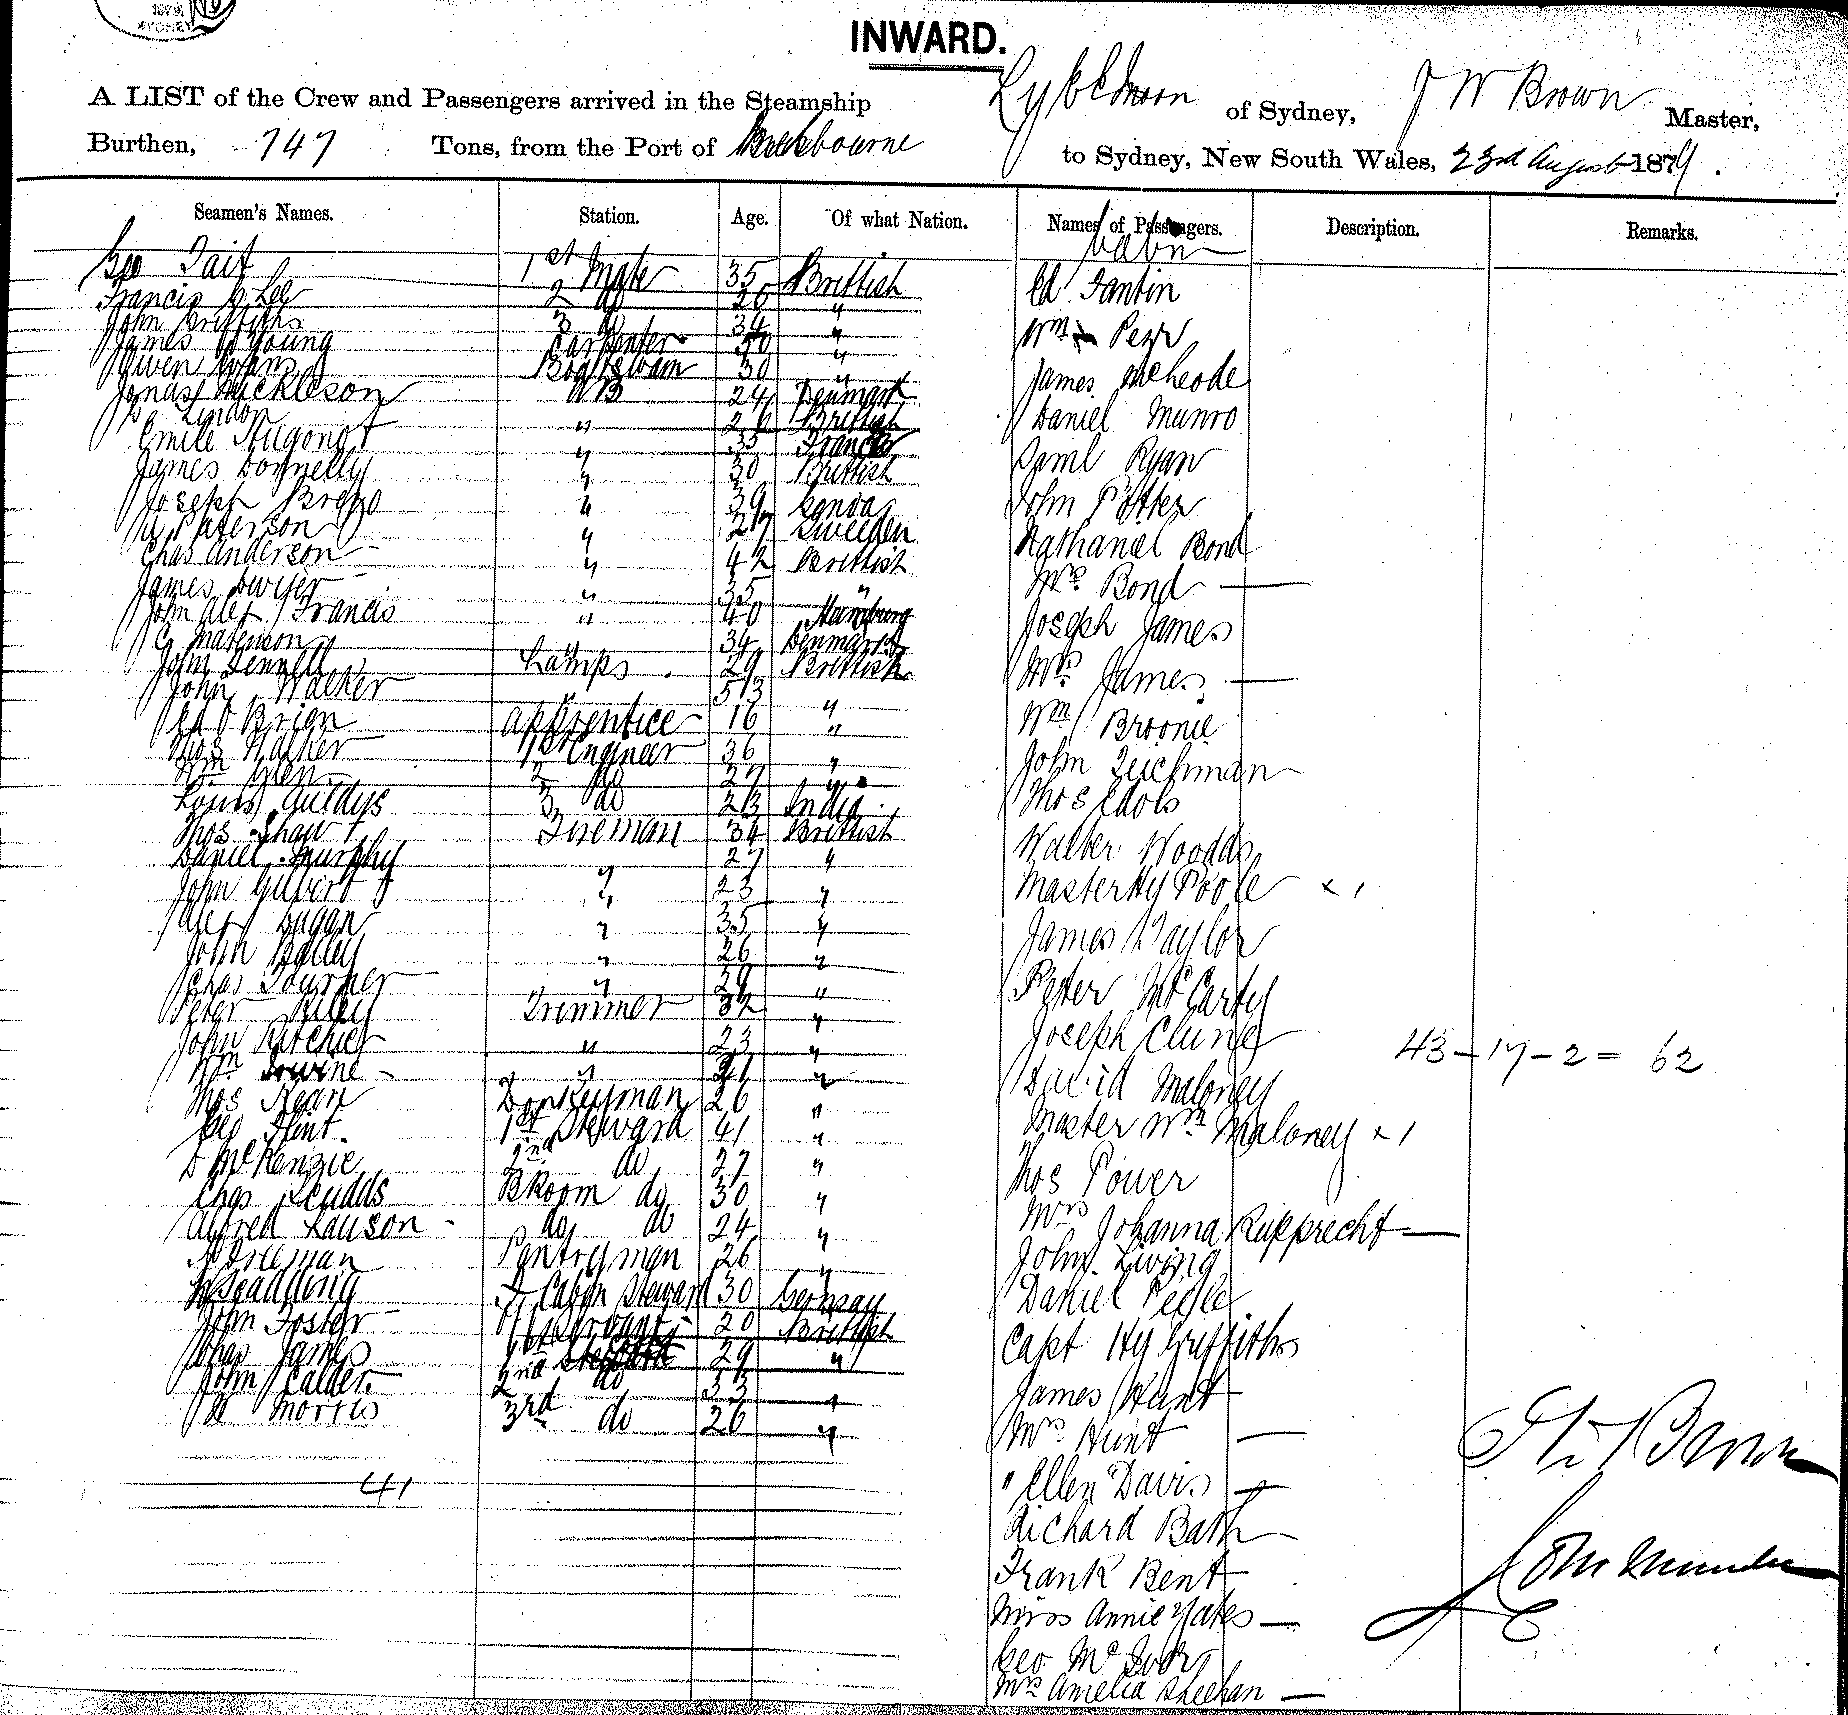 1879
SYDNEY
INWARD.
A LIST of the Crew and Passengers arrived in the Steamship of Sydney, J W Brown Master,
Burthen, 747 Tons, from the Port of Melbourne to Sydney, New South Wales, 23rd August 1879.
Seamen's Names. Station. Age. Of what Nation. Names of Passengers. Description. Remarks.
Cabin
Geo Tait 1st Mate 35 Brittish
Francis Lee 2 do 26 "
John Griffiths 3 do 34 "
James Young Carpenter "
Owen Evans Boatswain 30 "
Jonas Mickleson AB 24 Denmark
Lindon " 26 Brittish
Emile Hugonot " 35 France
James Donnelly " 30 Brittish
Joseph " 39 Genoa
Paterson " 27 Sweeden
Chas Anderson " 42 Brittish
James Dwyer " 35 "
John Alex Francis " 40 Hamburg
G Matenson " 34 Denmark
John Fennell Lamps 29 Brittish
John Walker 53 "
Ed O Brien Apprentice 16 "
Thos Walker 1st Engineer 36 "
Wm Glen 2 do 27 "
Louis 3 do 23 India
Thos Shaw Fireman 34 Brittish
Daniel Murphy " 27 "
John Gilbert " 23 "
Alex Dugan " 35 "
John Bailey " 26 "
Chas " 29 "
Peter Riley Trimmer 32 "
John Ritchie " 23 "
Wm Irvine " "
Thos Kean Donkeyman 26 "
Geo Flint 1st Steward 41 "
D McKenzie 2nd do 27 "
Chas Scudds B Room do 30 "
Alfred Lawson do do 24 "
Freeman Pantryman 26 "
Cabin Steward 30 Germany
John Foster 20 Brittish
Chas James 29 "
John Calder 2nd do 33 "
Morris 3rd do 26 "
41
Ed Fantin
Wm Perr
James McLeode
Daniel Munro
Saml Ryan
John Potter
Nathaniel Bond
Mrs Bond —
Joseph James
Mrs James —
Wm Broonie
John Teichman
Thos Edols
Walter Woodds
Master Hy Poole × 1
James Taylor
Peter McCarty
Joseph Clune
David Maloney
Master Wm Maloney × 1
Thos Power
Mrs Johanna Rupprecht —
John Living
Daniel
Capt Hy Griffiths
James Hunt
Mrs Hunt —
" Ellen Davis —
Richard Bath
Frank Bent
Miss Annie Yates —
Geo McIvor
Mrs Amelia Sheehan —
43 – 17 – 2 = 62
Brown
Commander